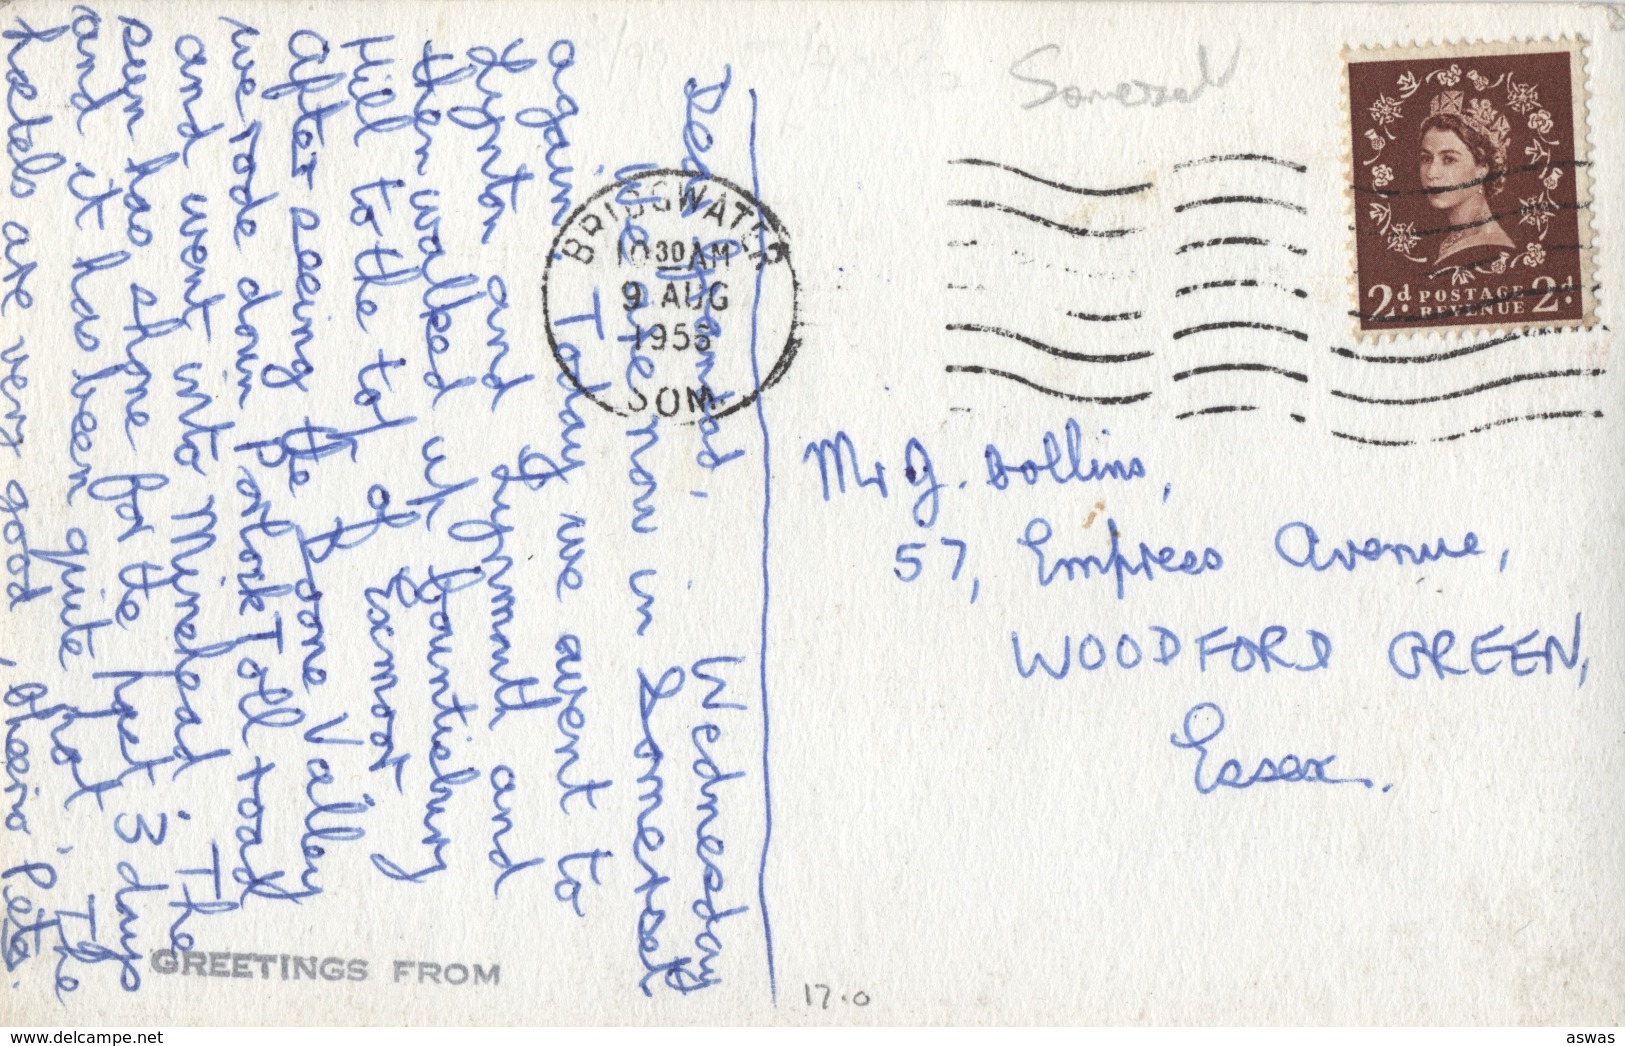 Somerset
BRIDGWATER
10 30 AM
9 AUG
1956
SOM.
2d POSTAGE 2d
REVENUE
Wednesday
Dear
We are now in Somerset
again. Today we went to
Lynton and Lynmouth and
then walked up Countisbury
Hill to the top of Exmoor
After seeing the Doone Valley
we rode down Porlock Toll road
and went into Minehead. The
sun has shone for the last 3 days
and it has been quite hot. The
hotels are very good, Cheerio, Peter.
GREETINGS FROM
Mr J. Dollins,
57, Empress Avenue,
WOODFORD GREEN,
Essex.
17.0
https://www.delcampe.net
aswas